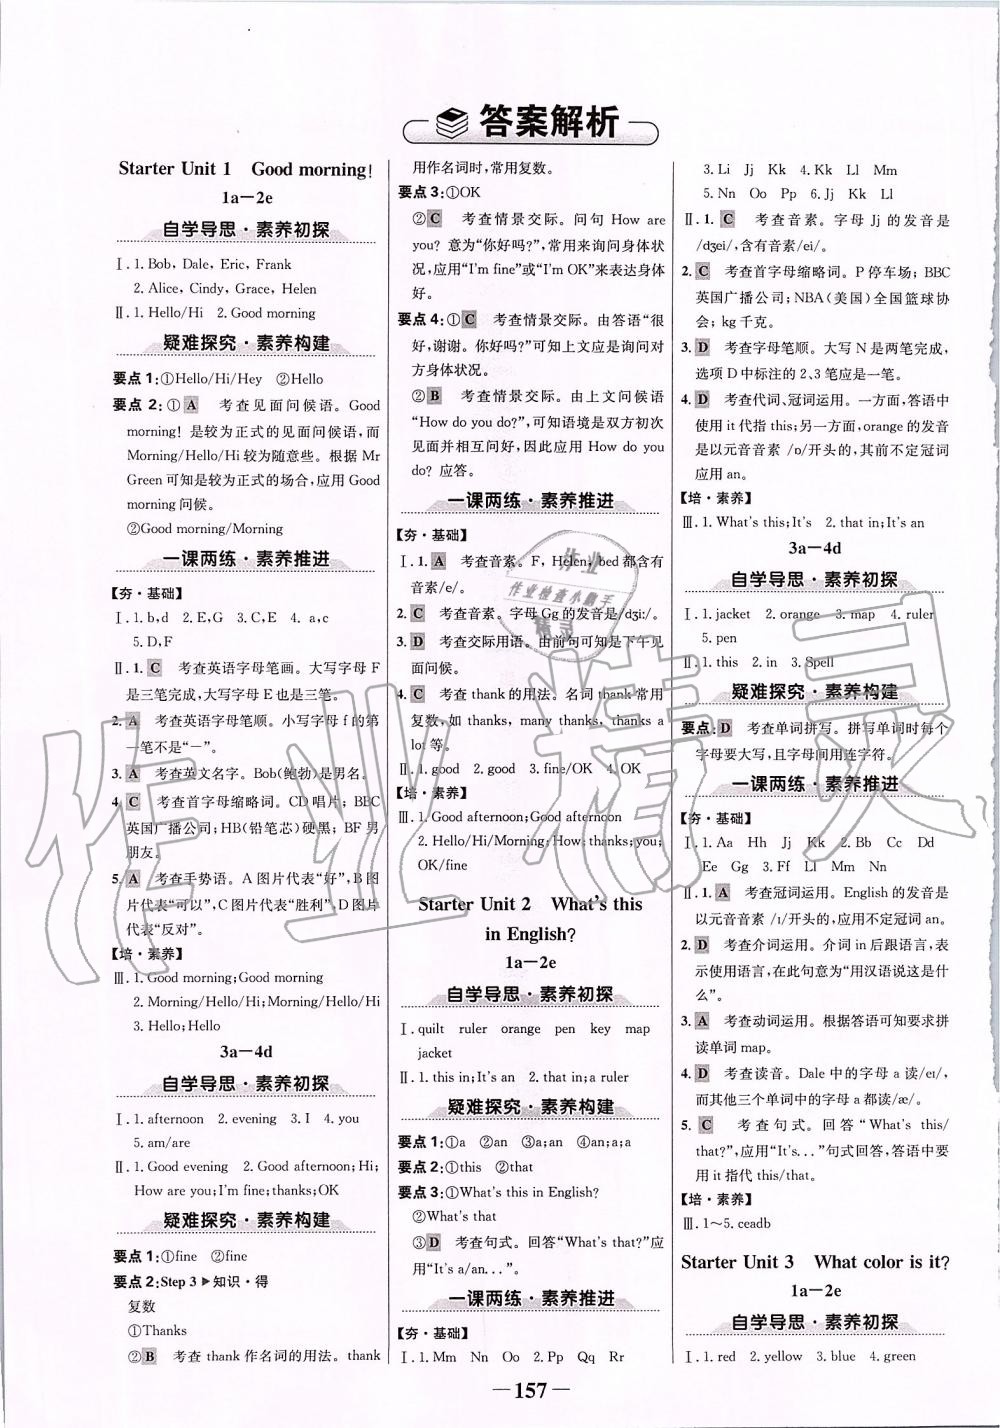 答案解析
Starter Unit 1 Good morning!
1a—2e
自学导思·素养初探
Ⅰ. 1. Bob, Dale, Eric, Frank
2. Alice, Cindy, Grace, Helen
Ⅱ. 1. Hello/Hi 2. Good morning
疑难探究·素养构建
要点1:①Hello/Hi/Hey ②Hello
要点2:①A 考查见面问候语。Good
morning! 是较为正式的见面问候语,而
Morning/Hello/Hi较为随意些。根据Mr
Green可知是较为正式的场合,应用Good
morning问候。
②Good morning/Morning
一课两练·素养推进
【夯·基础】
Ⅰ. 1. b,d 2. E,G 3. C,E 4. a,c
5. D,F
Ⅱ. 1. C 考查英语字母笔画。大写字母F
是三笔完成,大写字母E也是三笔。
2. A 考查英语字母笔顺。小写字母f的第
一笔不是“一”。
3. A 考查英文名字。Bob(鲍勃)是男名。
4. C 考查首字母缩略词。CD唱片;BBC
英国广播公司;HB(铅笔芯)硬黑;BF男
朋友。
5. A 考查手势语。A图片代表“好”,B图
片代表“可以”,C图片代表“胜利”,D图片
代表“反对”。
【培·素养】
Ⅲ. 1. Good morning;Good morning
2. Morning/Hello/Hi;Morning/Hello/Hi
3. Hello;Hello
3a—4d
自学导思·素养初探
Ⅰ. 1. afternoon 2. evening 3. I 4. you
5. am/are
Ⅱ. 1. Good evening 2. Good afternoon;Hi;
How are you;I'm fine;thanks;OK
疑难探究·素养构建
要点1:①fine ②fine
要点2:Step 3▶知识·得
复数
①Thanks
②B 考查thank作名词的用法。thank
用作名词时,常用复数。
要点3:①OK
②C 考查情景交际。问句How are
you? 意为“你好吗?”,常用来询问身体状
况,应用“I'm fine”或“I'm OK”来表达身体
好。
要点4:①C 考查情景交际。由答语“很
好,谢谢。你好吗?”可知上文应是询问对
方身体状况。
②B 考查情景交际。由上文问候语
“How do you do?”,可知语境是双方初次
见面并相互问好,因此应用How do you
do? 应答。
一课两练·素养推进
【夯·基础】
Ⅰ. 1. A 考查音素。F, Helen, bed都含有
音素/e/。
2. C 考查音素。字母Gg的发音是/dʒiː/。
3. D 考查交际用语。由前句可知是下午见
面问候。
4. C 考查thank的用法。名词thank常用
复数,如thanks, many thanks, thanks a
lot等。
Ⅱ. 1. good 2. good 3. fine/OK 4. OK
【培·素养】
Ⅲ. 1. Good afternoon;Good afternoon
2. Hello/Hi/Morning;How;thanks;you;
OK/fine
Starter Unit 2 What's this
in English?
1a—2e
自学导思·素养初探
Ⅰ. quilt ruler orange pen key map
jacket
Ⅱ. 1. this in;It's an 2. that in;a ruler
疑难探究·素养构建
要点1:①a ②an ③a;an ④an;a;a
要点2:①this ②that
要点3:①What's this in English?
②What's that
③D 考查句式。回答“What's that?”应
用“It's a/an...”。
一课两练·素养推进
【夯·基础】
Ⅰ. 1. Mm Nn Oo 2. Pp Qq Rr
3. Li Jj Kk 4. Kk Ll Mm
5. Nn Oo Pp 6. Jj Kk Ll
Ⅱ. 1. C 考查音素。字母Jj的发音是
/dʒei/,含有音素/ei/。
2. C 考查首字母缩略词。P停车场;BBC
英国广播公司;NBA(美国)全国篮球协
会;kg千克。
3. D 考查字母笔顺。大写N是两笔完成,
选项D中标注的2、3笔应是一笔。
4. D 考查代词、冠词运用。一方面,答语中
使用it代指this;另一方面,orange的发音
是以元音音素 /ɒ/开头的,其前不定冠词
应用an。
【培·素养】
Ⅲ. 1. What's this;It's 2. that in;It's an
3a—4d
自学导思·素养初探
Ⅰ. 1. jacket 2. orange 3. map 4. ruler
5. pen
Ⅱ. 1. this 2. in 3. Spell
疑难探究·素养构建
要点:D 考查单词拼写。拼写单词时每个
字母要大写,且字母间用连字符。
一课两练·素养推进
【夯·基础】
Ⅰ. 1. Aa Hh Jj Kk 2. Bb Cc Dd
Ee Gg 3. Ff Ll Mm Nn
Ⅱ. 1. A 考查冠词运用。English的发音是
以元音音素 /ɪ/开头的,应用不定冠词an。
2. D 考查介词运用。介词in后跟语言,表
示使用语言,在此句意为“用汉语说这是什
么”。
3. A 考查动词运用。根据答语可知要求拼
读单词map。
4. D 考查读音。Dale中的字母a读/eɪ/,
而其他三个单词中的字母a都读/æ/。
5. C 考查句式。回答“What's this/
that?”,应用“It's...”句式回答,答语中要
用it指代this/that。
【培·素养】
Ⅲ. 1～5. ceadb
Starter Unit 3 What color is it?
1a—2e
自学导思·素养初探
Ⅰ. 1. red 2. yellow 3. blue 4. green
— 157 —
作业
作业检查小助手
精灵
作业精灵